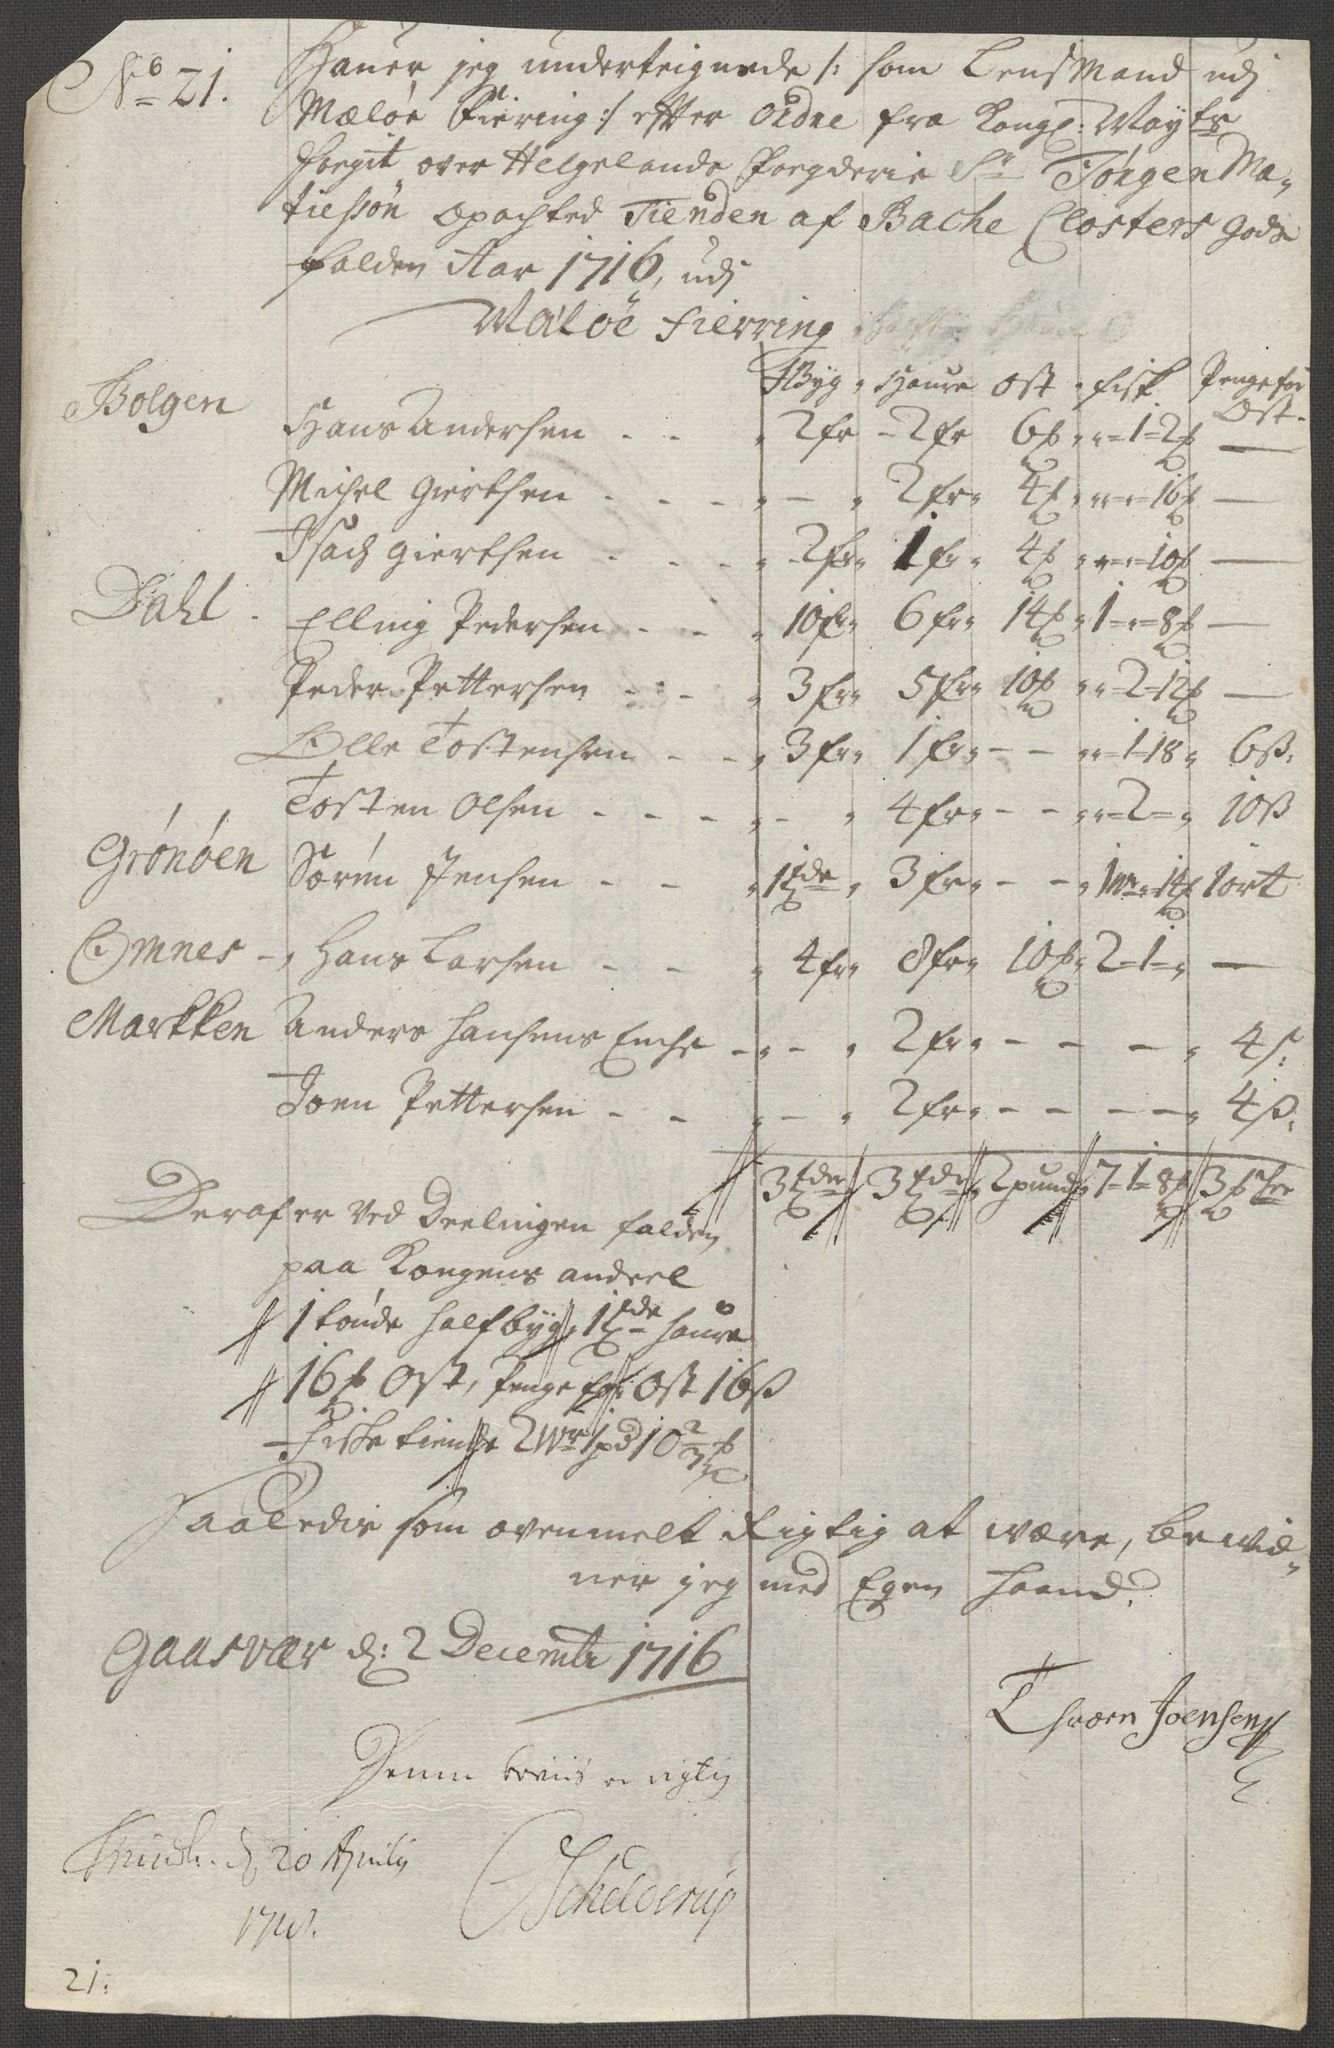 No 21.
Hafuer jeg underteignede /: som Lensmand udj
Meløe Fiering :/ effter Ordre fra Kongl: Mayts
Foegit over Helgelands Foegderie Sr Jørgen Ma-
tiessøn opachted Tienden af Bache Closters gods
falden Aar 1716, udj
Maløe Fierring
Byg Haure Ost fisk Penge for Ost.
Bolgen Hans Andersen - - 2 fr - 2 fr 6 ℔ - 1 = 2 ℔ —
Michel Giertsen - - - - 2 fr 4 ℔ 16 ℔ —
Isach Giertsen - - 2 fr 1 fr 4 ℔ 10 ℔ —
Dahl - Elling Pedersen - - 10 fr 6 fr 14 ℔ 1 = = 8 ℔ —
Peder Pettersen - - 3 fr 5 fr 10 ℔ - 2 = 12 ℔ —
Olle Tostensen - - 3 fr 1 fr - - 1 = 18 6 ß.
Tosten Olsen - - - - 4 fr - - = 2 = 10 ß
Grønøen Sørén Jensen - - 1 tde 3 fr - - 1 wr 14 ℔ 1 ort
Omnes - Hans Larsen - - 4 fr 8 fr 10 ℔ 2 = 1 = —
Markken Anders Hansens Enche - - 2 fr - - - 4 ß.
Joen Pettersen - - - - 2 fr - - - 4 ß.
3 tder 3 tde 2 pund 7 = 1 = 8 ℔
Deraf er ved Deelingen falden
paa Kongens andeel
1 tønde half byg, 1 tde haure
16 ℔ Ost, Penge for Ost 16 ß
Fiske tiende 2 Wr 1 pd 10 2/3 ℔
Saaledis som ovenmelt Rigtig at være, bevid-
ner jeg med Egen haand.
Gaasvær d: 2 Decembr 1716
Thoern Joensen
Denne beviis er rigtig
d. 20 Aprilij
Schelderup
21: